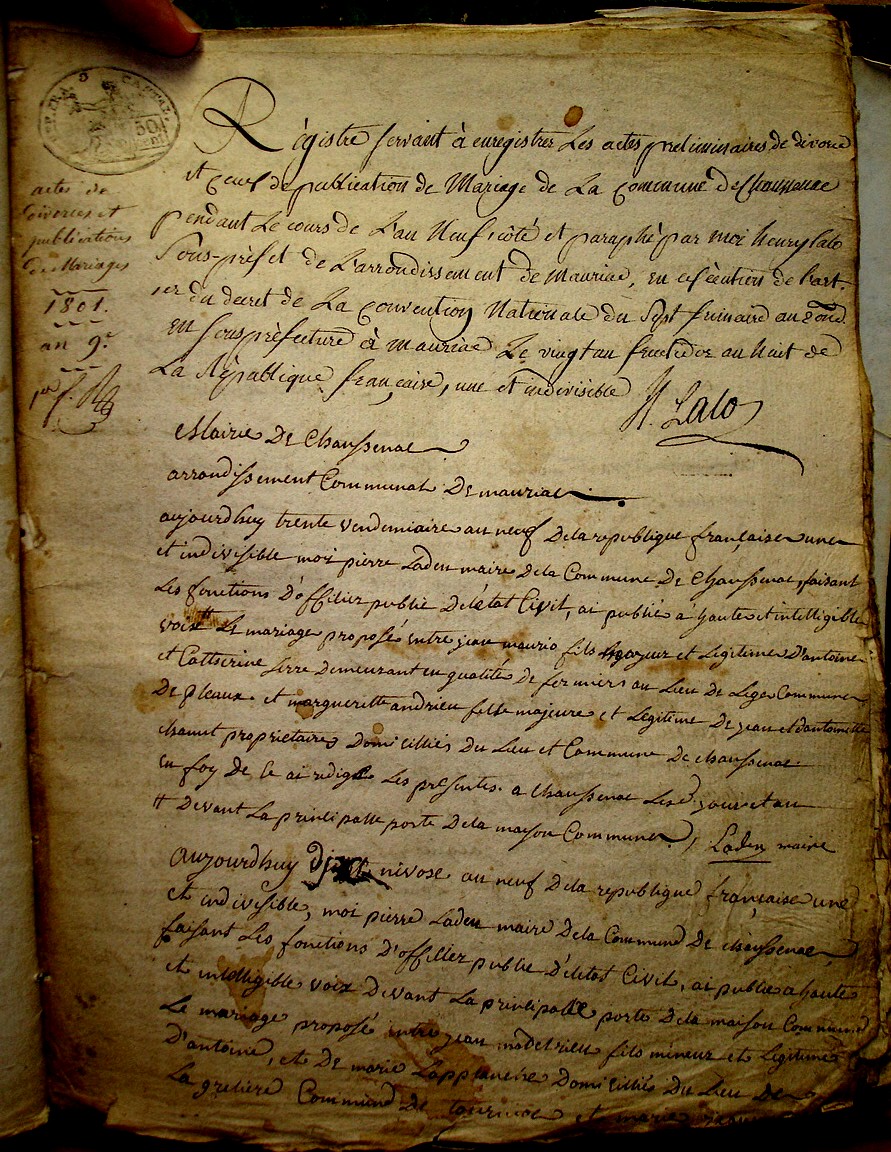 actes de
divorces et
publications
de Mariages
1801.
an 9.e
Régistre servant à enregistrer Les actes preliminaires de divorce
et ceux de publication de Mariage de La commune de Chaussenac
pendant Le cours de L'an Neuf, côté et paraphé par moi henry lalo
Sous-préfet de L'arrondissement de Mauriac, en exécution de L'art.
1er du decret de La convention Nationale du Sept frimaire an 2ond
En Souspréfecture à Mauriac Le vingt un fructidor an huit de
La République française, une et indivisible
H. Lalo
Mairie De Chaussenac
arrondissement Communal De mauriac
aujourdhuy trente vendemiaire an neuf Dela republique française une
et indivisible moi pierre Laden maire Dela Commune De Chaussenac, faisant
Les fonctions D'offilier public Deletat Civil, ai publié a haute et intelligible
voix tt Le mariage proposé entre jean maurio fils majeur et Legitime D'antoine
et Catterine serre demeurant en qualité De fermiers au Lieu De Lege Commune
De pleaux. et margueritte andrieu fille majeure et Legitime De jean et d'antoinette
chanut proprietaires Domicilliés Du Lieu et Commune De chaussenac
en foy De Ce ai redigé Les presentes. a Chaussenac Lesd. jour et an
tt Devant La principalle porte Dela maison Commune, Laden maire
aujourdhuy nivose an neuf Dela republique française une
et indivisible, moi pierre Laden maire Dela Commune De chaussenac
faisant Les fonctions D'offilier public D'eletat Civil, ai publié a haute
et intelligible voix Devant La principalle porte Dela maison Commune
Le mariage proposé entre jean madelrieu fils mineur et Legitime
D'antoine, et De marie Lapplanche Domicilliés Du Lieu De
La gretiere Commune De tourniac et marie